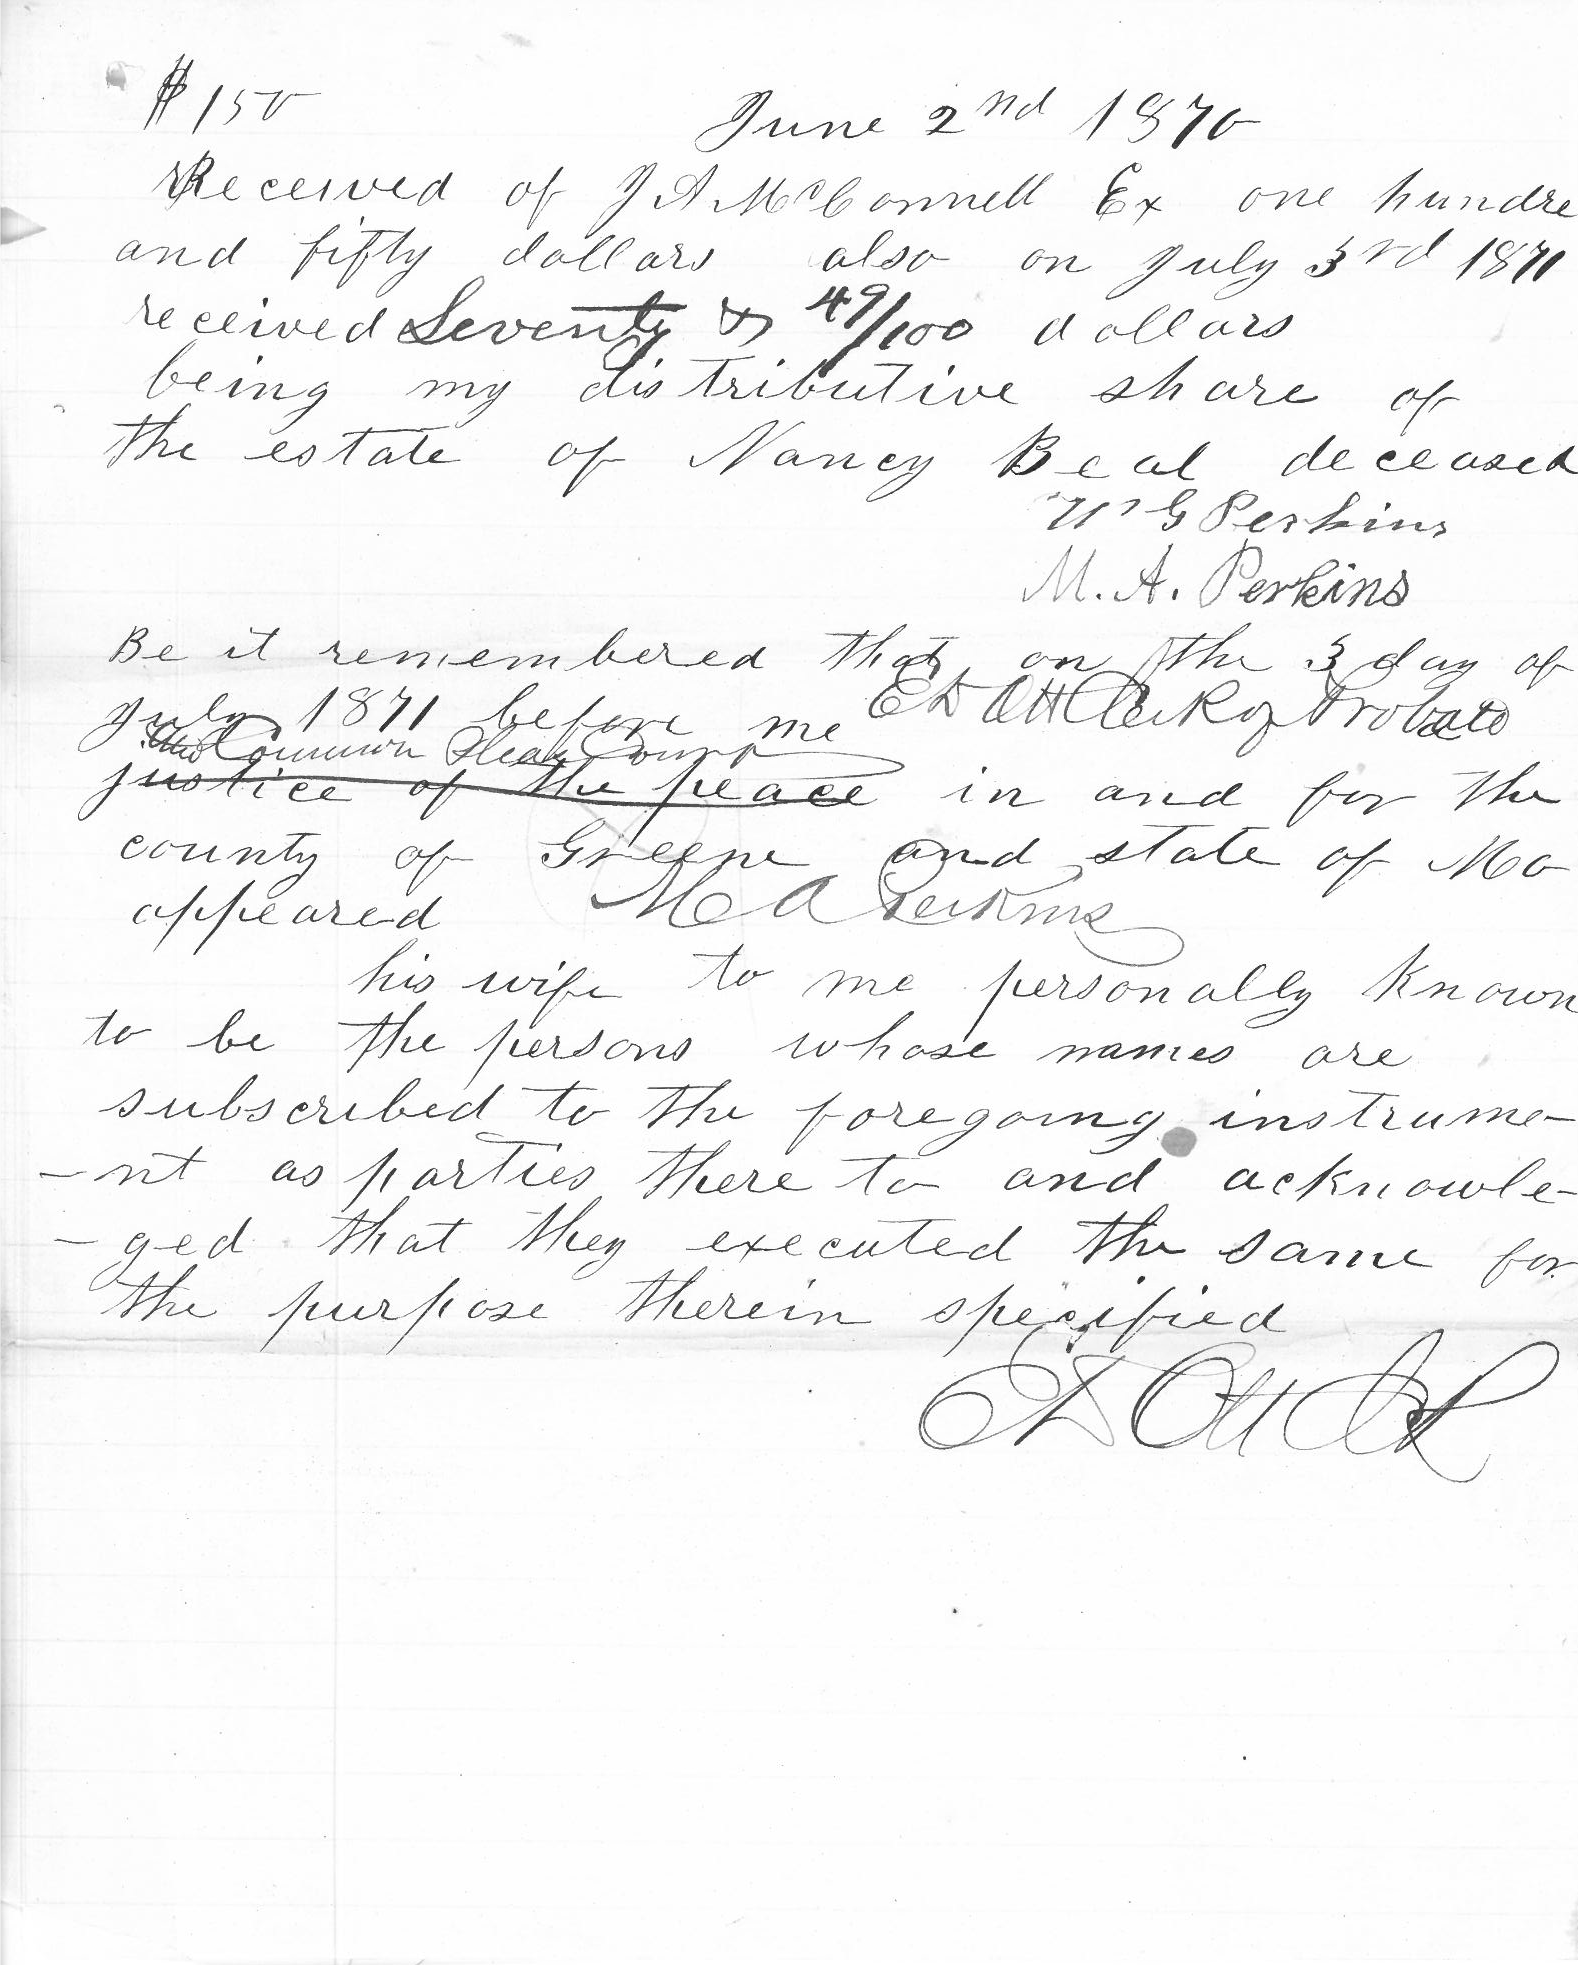 $150
June 2nd 1870
Received of J A McConnell Ex one hundre
and fifty dollars also on July 3rd 1871
received Seventy & 49/100 dollars
being my distributive share of
the estate of Nancy Beal deceased
W G Perkins
M. A. Perkins
Be it remembered that on the 3 day of
July 1871 before me E D Ott Clerk of Probate
and Common Pleas Court
justice of the peace in and for the
county of Greene and state of Mo
appeared M A Perkins
his wife to me personally known
to be the persons whose names are
subscribed to the foregoing instrume-
-nt as parties there to and acknowle-
-ged that they executed the same for
the purpose therein specified
E D Ott Clk